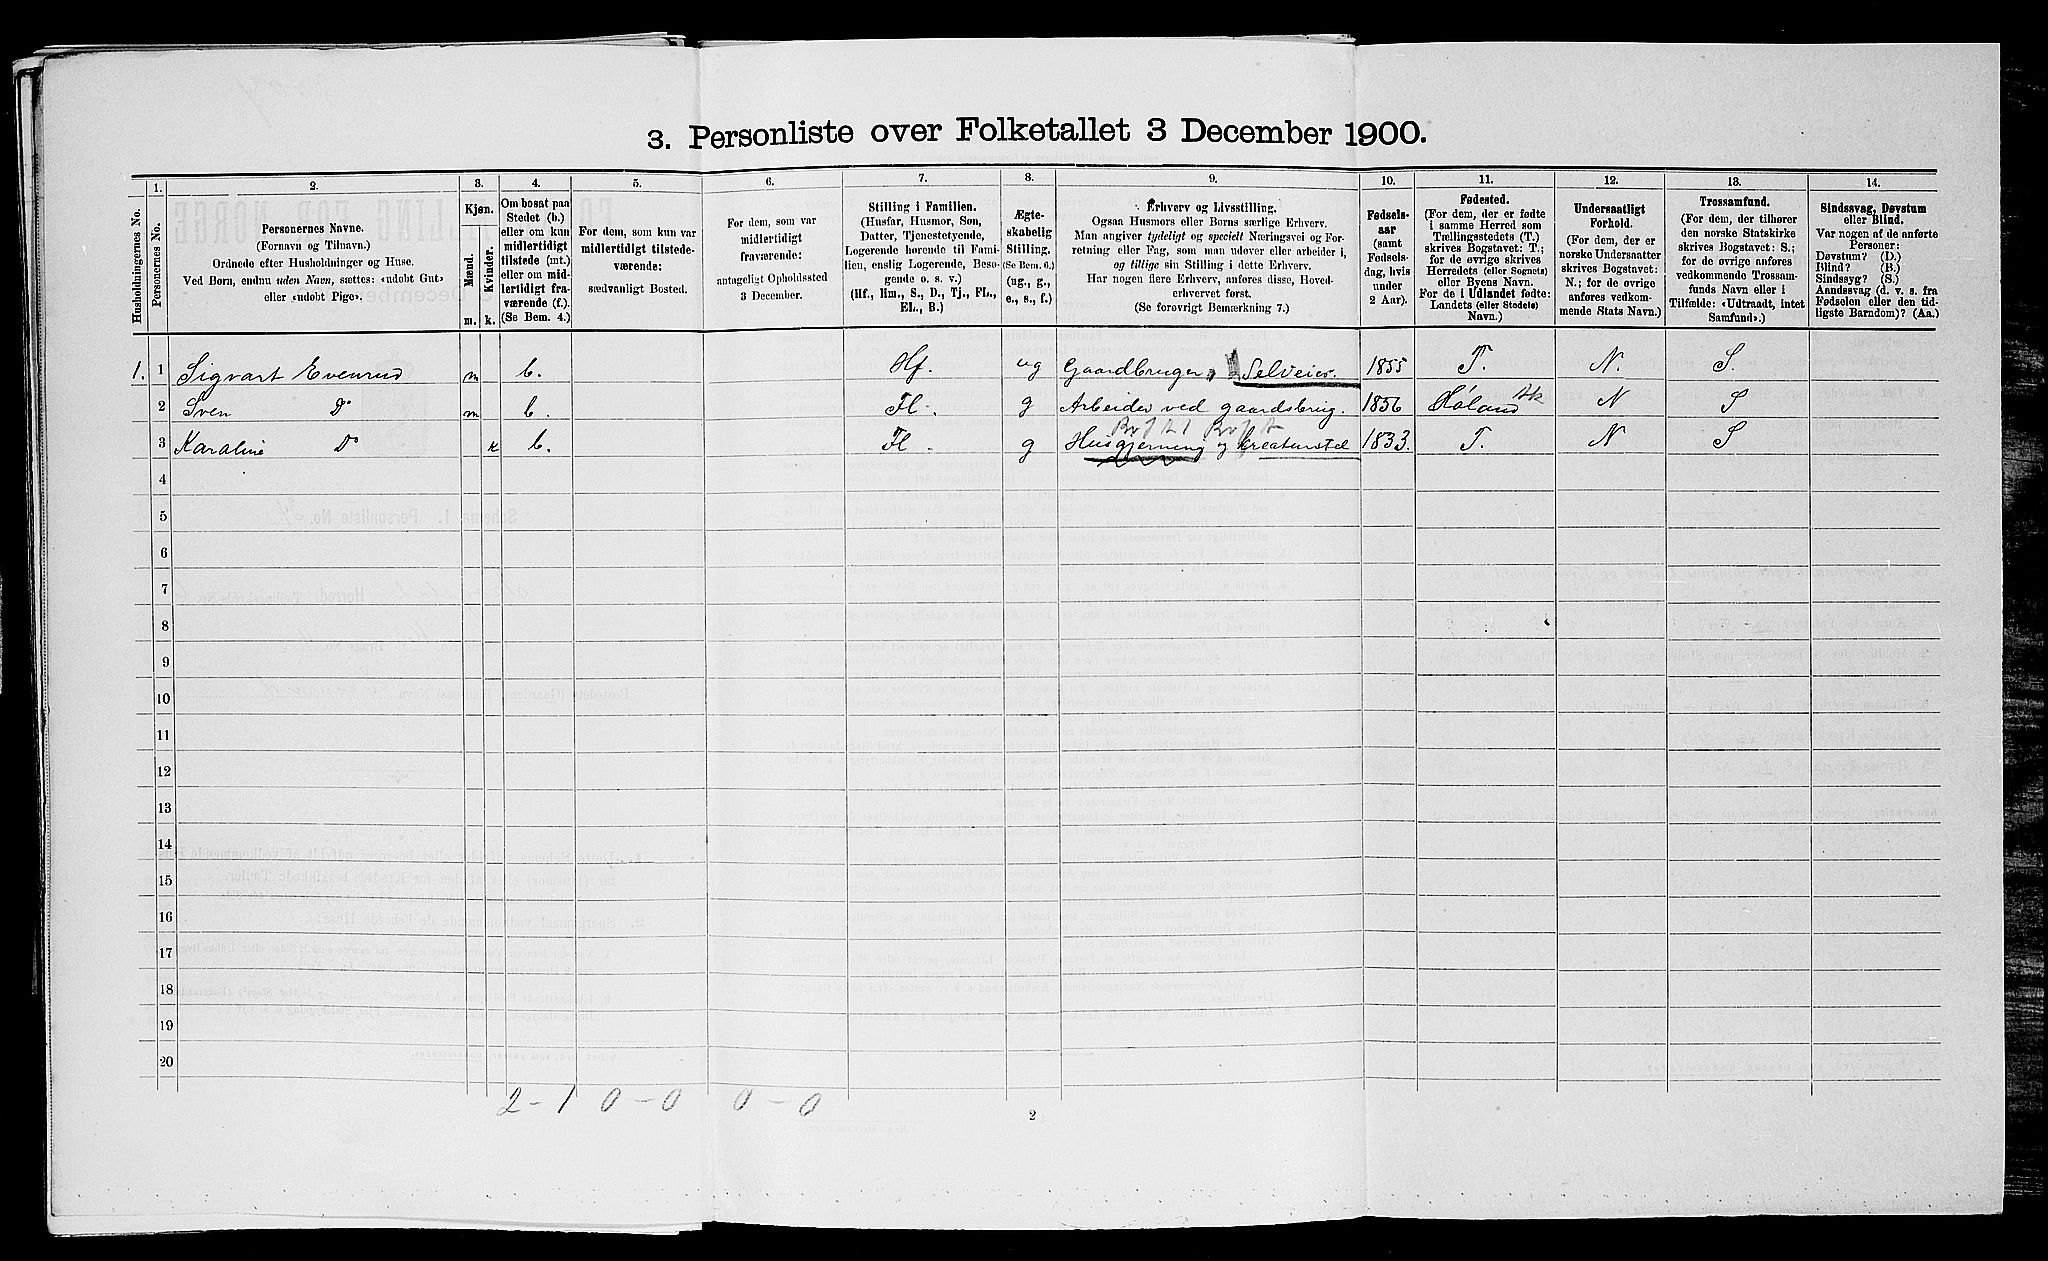 3. Personliste over Folketallet 3 December 1900.
Husholdningernes No.
1.
Personernes No.
2.
Personernes Navne.
(Fornavn og Tilnavn.)
Ordnede efter Husholdninger og Huse.
Ved Børn, endnu uden Navn, sættes: «udøbt Gut»
eller «udøbt Pige».
3.
Kjøn.
Mænd.
m.
Kvinder.
k.
4.
Om bosat paa
Stedet (b.)
eller om kun
midlertidigt
tilstede (mt.)
eller om mid-
lertidigt fra-
værende (f.).
(Se Bem. 4.)
5.
For dem, som kun var
midlertidigt tilstede-
værende:
sædvanligt Bosted.
6.
For dem, som var
midlertidigt
fraværende:
antageligt Opholdssted
3 December.
7.
Stilling i Familien.
(Husfar, Husmor, Søn,
Datter, Tjenestetyende,
Logerende hørende til Fami-
lien, enslig Logerende, Besø-
gende o. s. v.)
(Hf., Hm., S., D., Tj., FL.,
EL., B.)
8.
Ægte-
skabelig
Stilling.
(Se Bem. 6.)
(ug., g.,
e., s., f.)
9.
Erhverv og Livsstilling.
Ogsaa Husmors eller Børns særlige Erhverv.
Man angiver tydeligt og specielt Næringsvei og For-
retning eller Fag, som man udøver eller arbeider i,
og tillige sin Stilling i dette Erhverv.
Har nogen flere Erhverv, anføres disse, Hoved-
erhvervet først.
(Se forøvrigt Bemærkning 7.)
10.
Fødsels-
aar
(samt
Fødsels-
dag, hvis
under
2 Aar).
11.
Fødested.
(For dem, der er fødte
i samme Herred som
Tællingsstedets (T.)
skrives Bogstavet: T.;
for de øvrige skrives
Herredets (eller Sognets)
eller Byens Navn.
For de i Udlandet fødte:
Landets (eller Stedets)
Navn.)
12.
Undersaatligt
Forhold.
(For dem, der er
norske Undersaatter
skrives Bogstavet:
N.; for de øvrige
anføres vedkom-
mende Stats Navn.)
13.
Trossamfund.
(For dem, der tilhører
den norske Statskirke
skrives Bogstavet: S.;
for de øvrige anføres
vedkommende Trossam-
funds Navn eller i
Tilfælde: «Udtraadt, intet
Samfund».)
14.
Sindssvag, Døvstum
eller Blind.
Var nogen af de anførte
Personer:
Døvstum? (D.)
Blind? (B.)
Sindssyg? (S.)
Aandssvag (d. v. s. fra
Fødselen eller den tid-
ligste Barndom)? (Aa.)
1. 1 Sigvart Evenrud m b. Hf. ug Gaardbruger, Selveier. 1855 T. N. S.
2 Sven Do m b. Fl. g Arbeider ved gaardsbrug. 1856 Høland N S
3 Karaline Do k b. Fl. g Husgjerning og kreaturstel 1833. T. N S
4
5
6
7
8
9
10
11
12
13
14
15
16
17
18
19
20
2 - 1 0 - 0 0 - 0
2